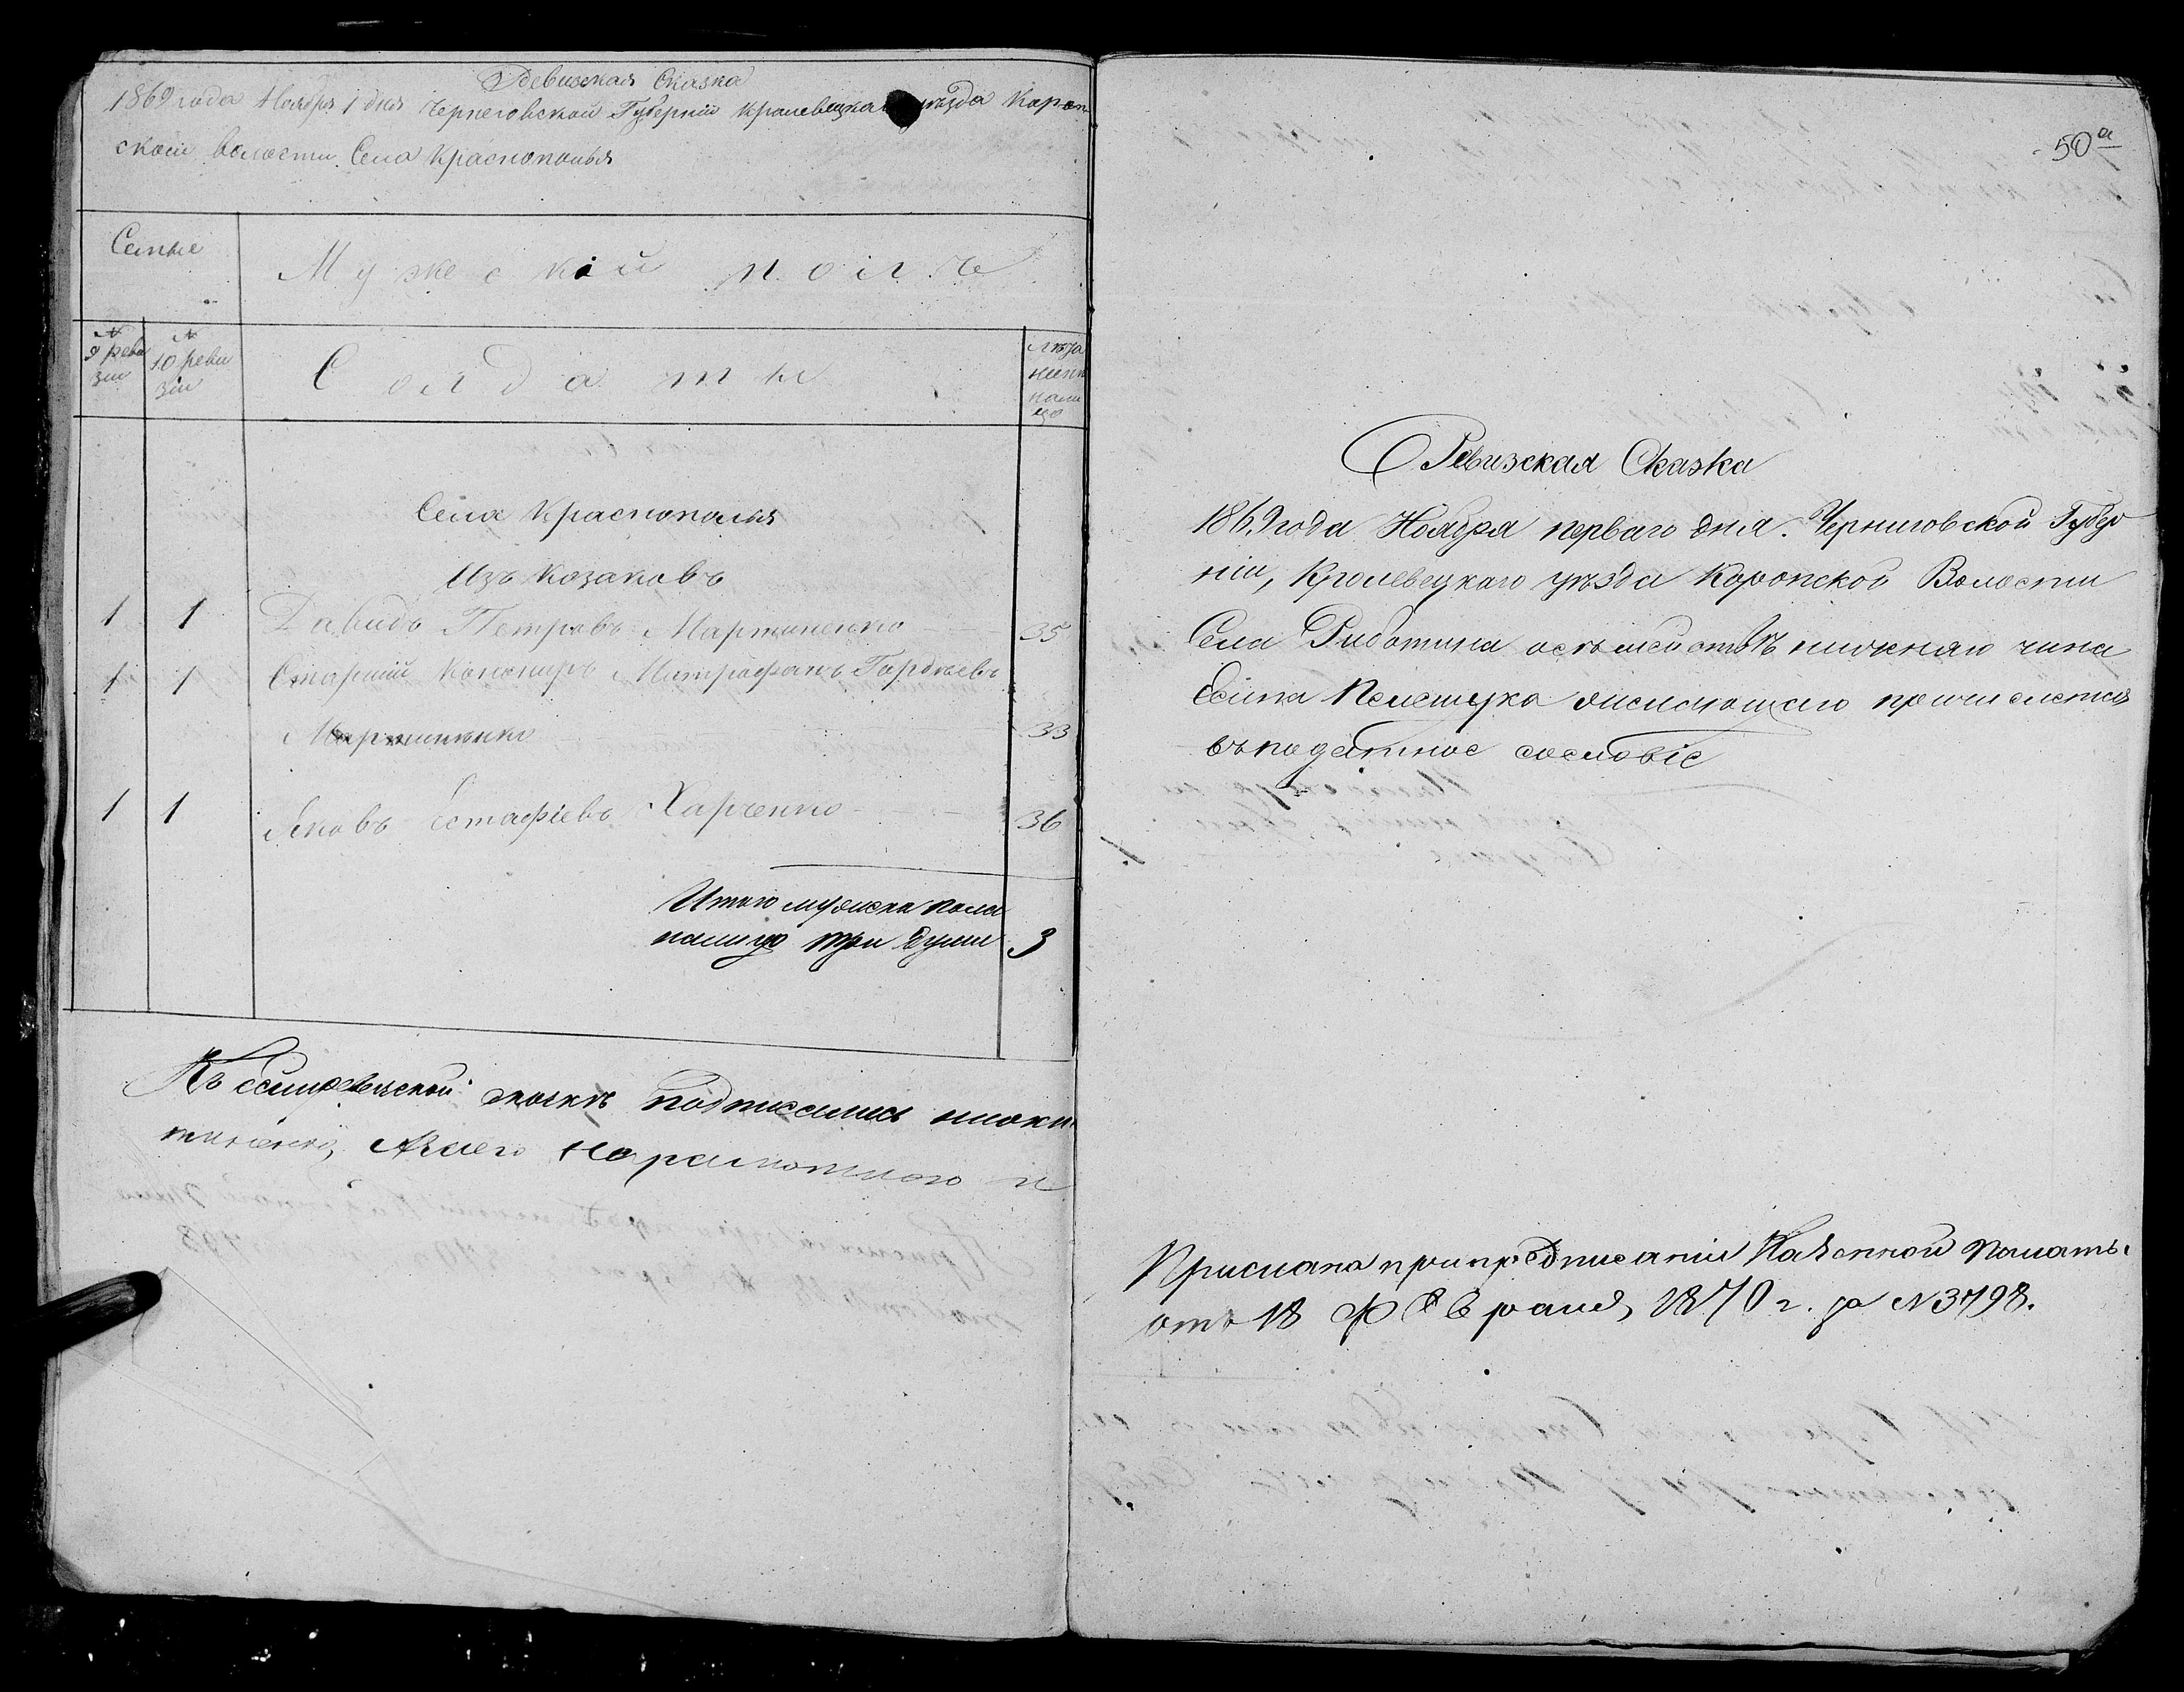 Ревизская Сказка
1869 года Ноября 1 дня Черниговской Губернии Кролевецкаго уезда Короп
ской волости Села Краснополья
Семьи
Мужеской полъ
№ 9 реви зіи
№ 10 реви зіи
Солдаты
Лета ныне на лицо
Села Краснополья
Изъ Козаковъ
1 1 Давидъ Петровъ Мартиненко 35
1 1 Старшій Канониръ Митрофанъ Гордѣевъ
Мартиненко 33
1 1 Яковъ Естафіевъ Харченко 36
Итого мужска пола
налицо три души 3
Къ сей ревизской сказкѣ подписались
неграмотного и
50а
Ревизская Сказка
1869 года Ноября перваго дня. Черниговской Губер
ніи, Кролевецкаго уѣзда Коропской Волости
Села Риботина о семействѣ нижняго чина
въ податное сословіе
Прислана при предписаніи Казенной Палаты
отъ 18 Февраля 1870 г. за №3798.